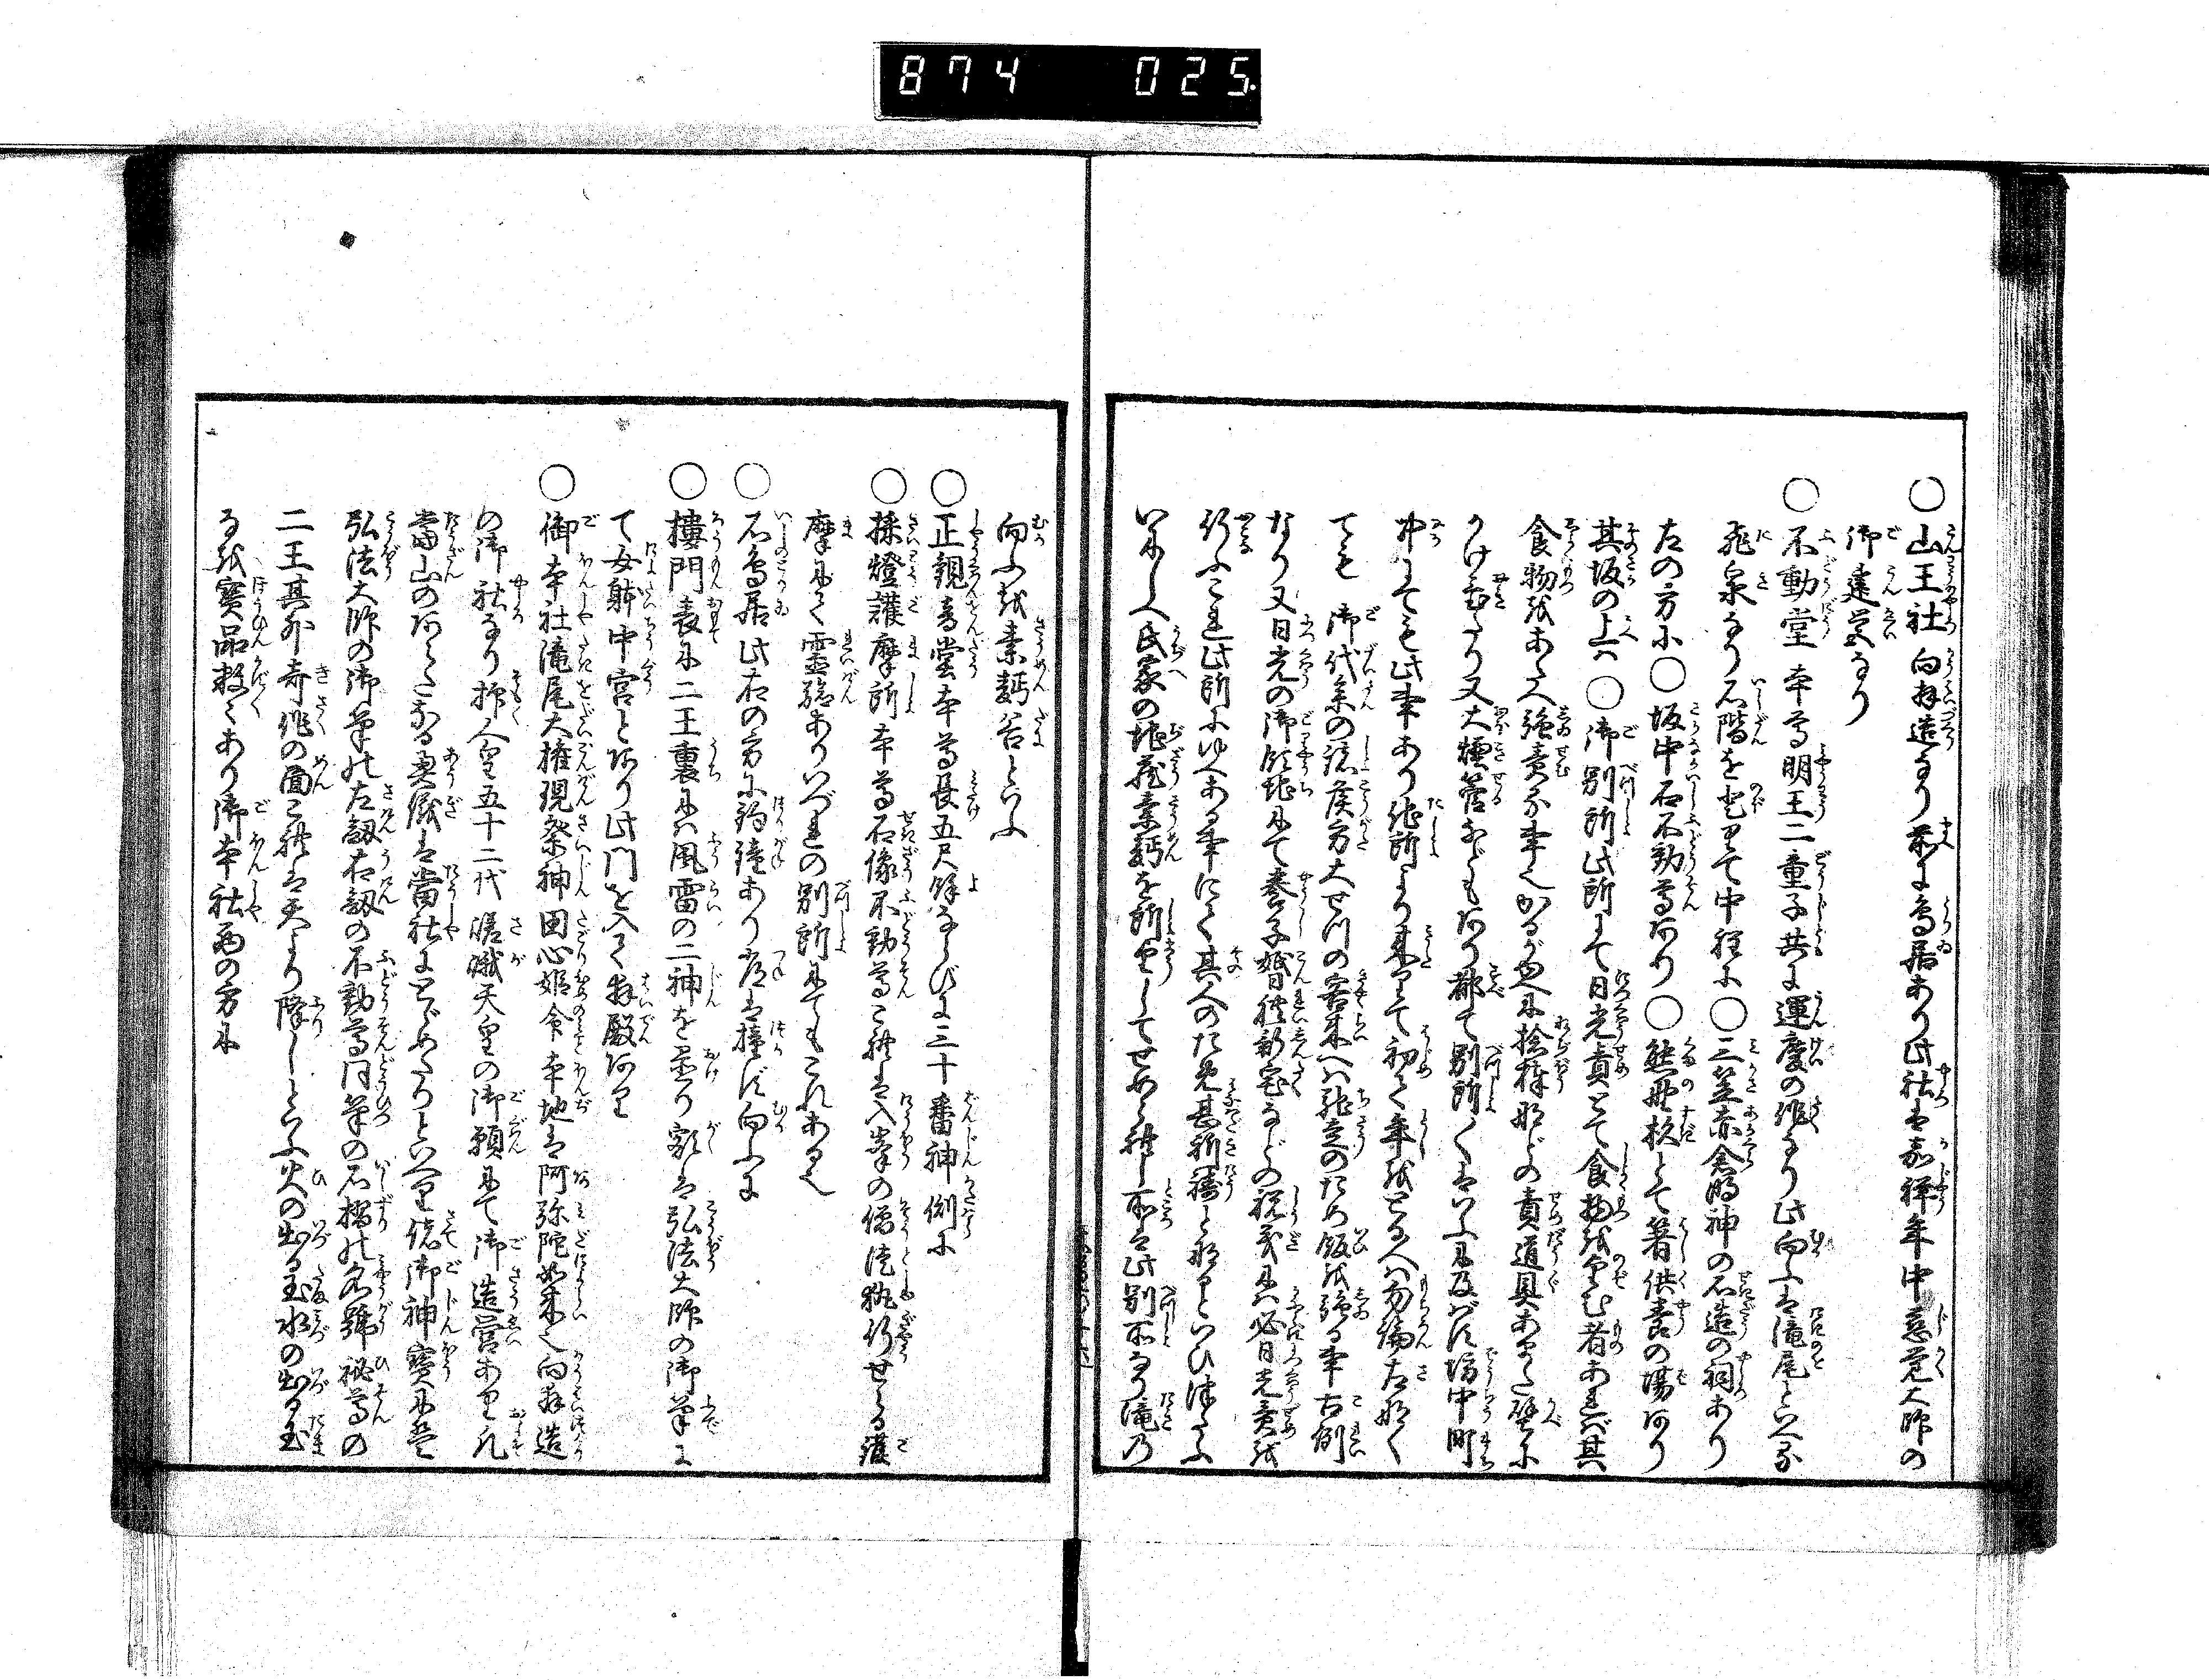 874 025.
○山王社向拝造なり前に鳥居あり此社は嘉祥年中慈覚大師の
御建立なり
○不動堂 本尊明王二童子共に運慶の作なり此向ふは滝尾といへる
飛泉なり石階を登りて中程に○三笠赤倉明神の石造の祠あり
左の方に○坂中石不動尊あり○熊野杉とて箸供養の場あり
其坂の上は○御別所此所にて日光責とて食物を望む者あれば其
食物をあたへ強責る事也かるが故に捻棒などの責道具あまた壁に
かけ置たり又大煙管などもあり都て別所〳〵はいふに及ばず坊中町
中にても此事あり他所より来りて初て年をとる人は勿論左なく
ても 御代参の諸侯方大せつの客来へは馳走のため飯を強る事古例
なり又日光の御領地にて養子婚礼新宅などの祝義には必日光責を
行ふこれ此所にゆへある事にて其人のため甚祈祷となるといひ伝ふ
いにしへ民家の地蔵素麺を所望してせめられし所は此別所なり滝の
向ふを素麺谷といふ
○正観音堂本尊長五尺余ならびに三十番神例に
○採燈護摩所本尊石像不動尊これは入峯の僧徒執行せらる護
摩にて霊験ありいづれの別所にてもこれある也
○石鳥居此右の方に釣鐘あり常は撞ず向ふに
○楼門表に二王裏には風雷の二神を置り額は弘法大師の御筆に
て女躰中宮とあり此門を入て拝殿あり
○御本社滝尾大権現祭神田心姫命本地は阿弥陀如来也向拝造
の御社なり抑人皇五十二代 嵯峨天皇の御願にて御造営あり凡
当山のあらたなる奥儀は当社にとゞめたりといへり偖御神宝には
弘法大師の御筆の左釼右釼の不動尊同筆の石摺の名号秘尊の
二王其外奇作の面これは天より降しといふ火の出る玉水の出る玉
るを宝品数々あり御本社西の方に